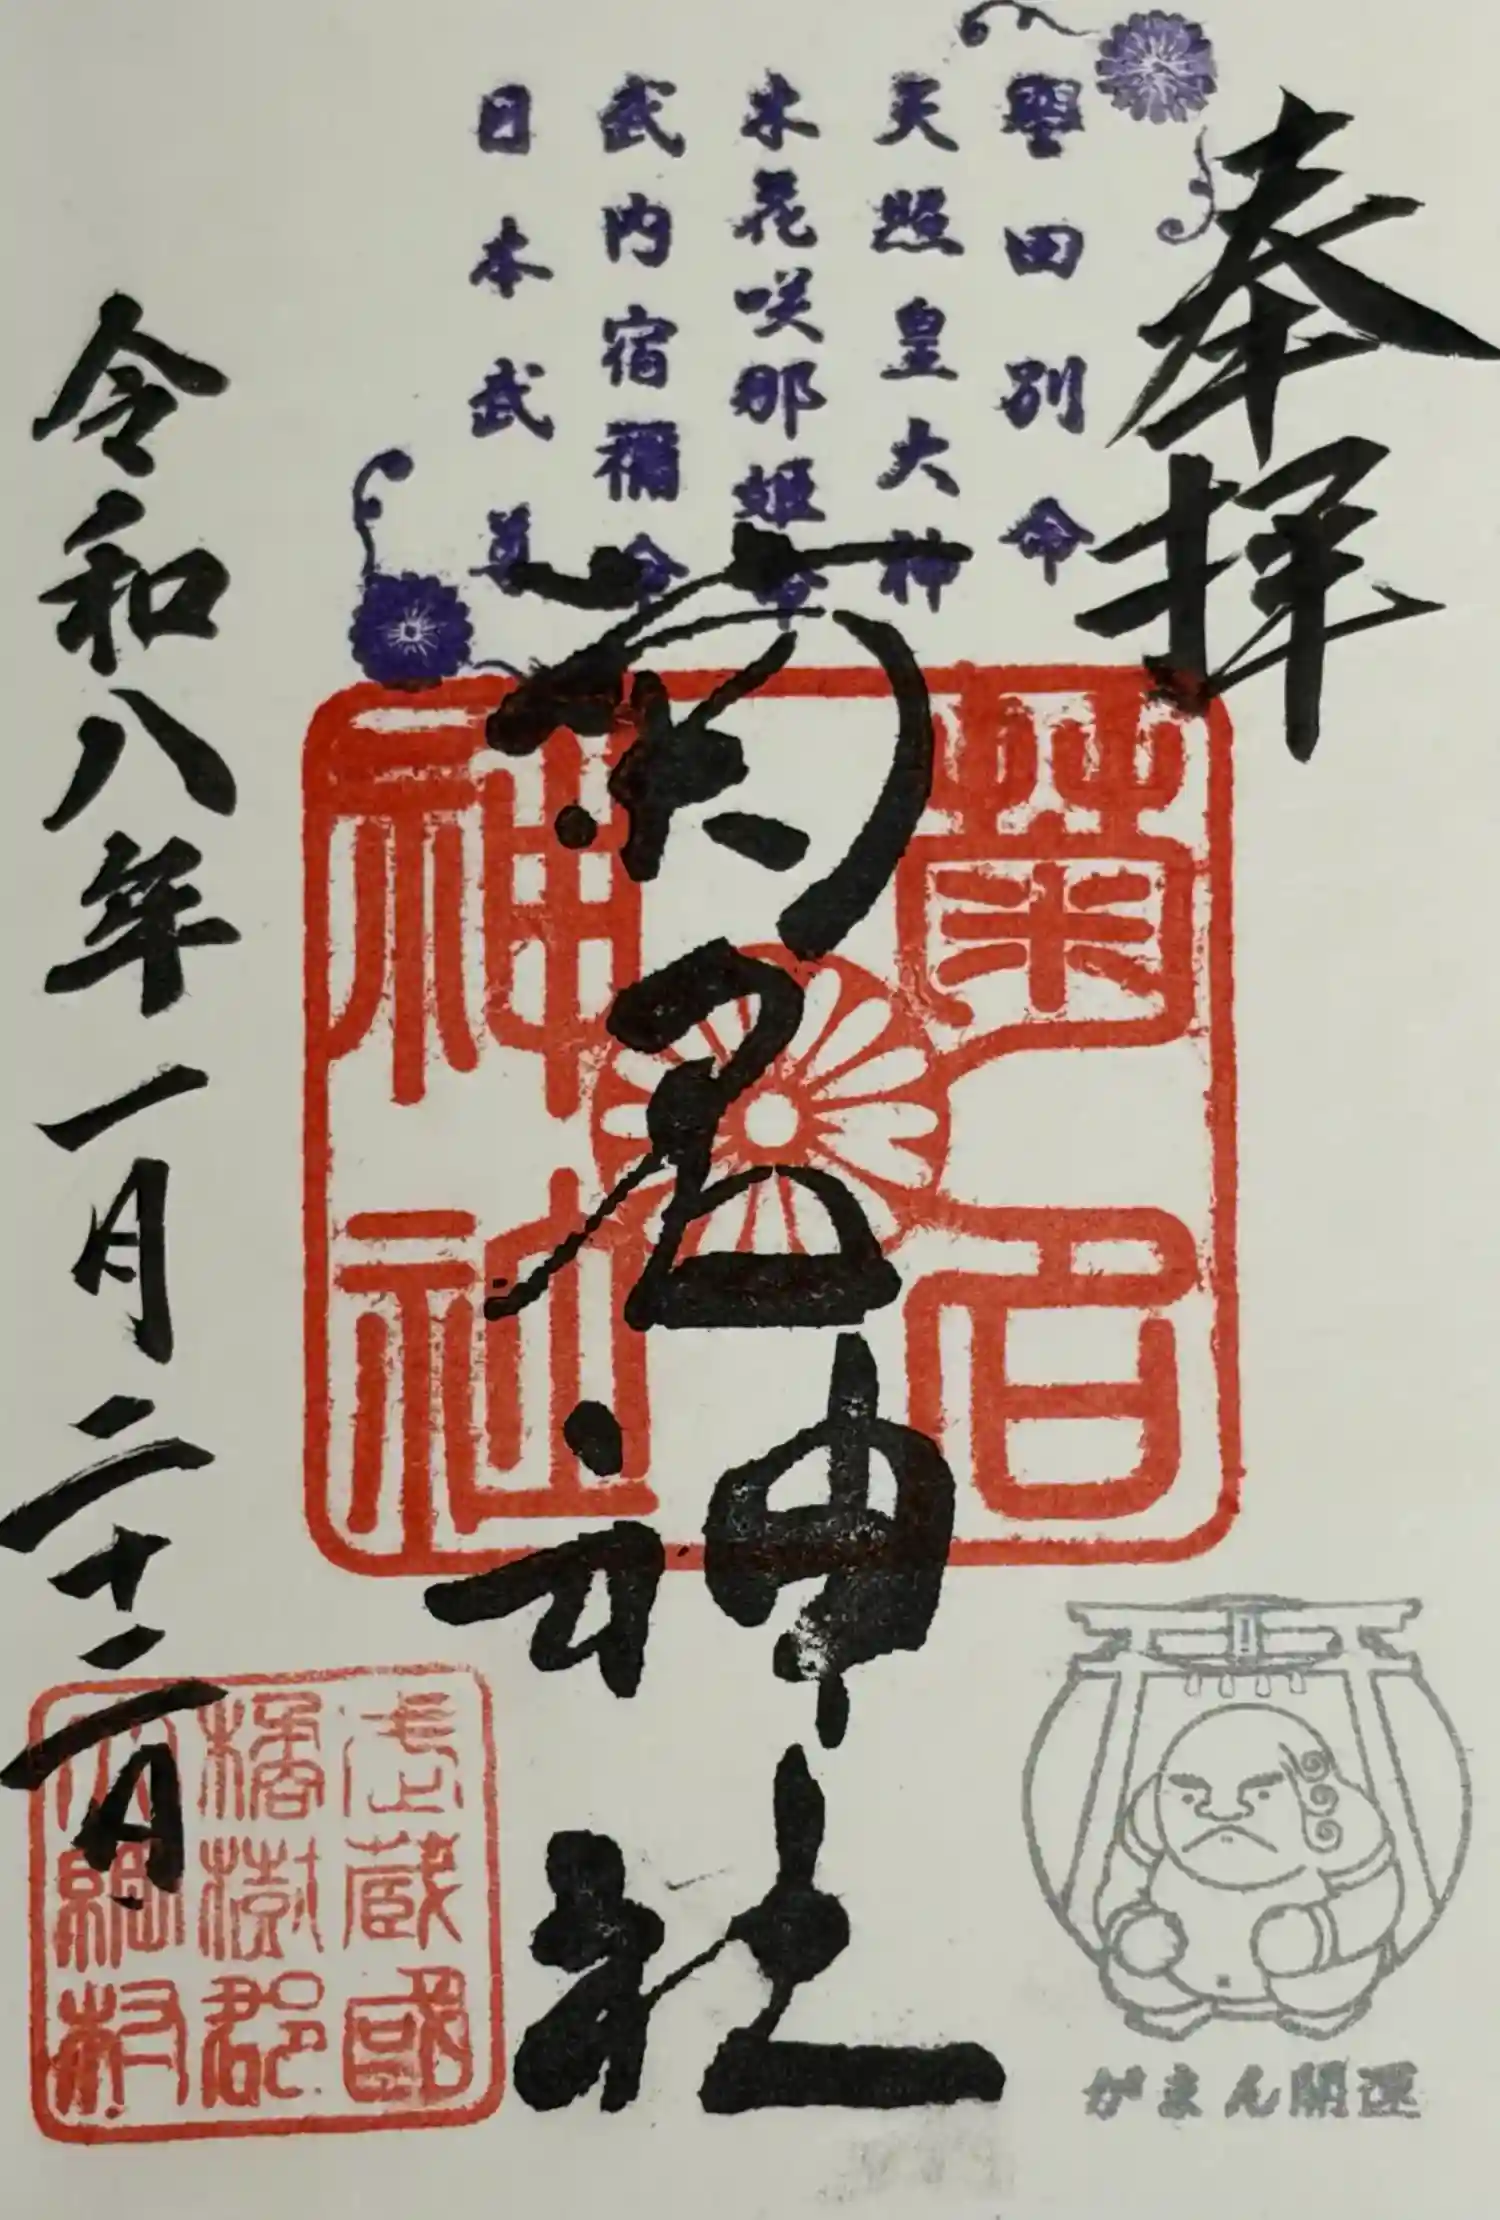 奉拝
誉田別命
天照皇大神
木花咲那姫命
武内宿禰命
日本武尊
菊名神社
菊名
神社
令和八年一月二十二日
武蔵國
橘樹郡
大綱村
がまん開運